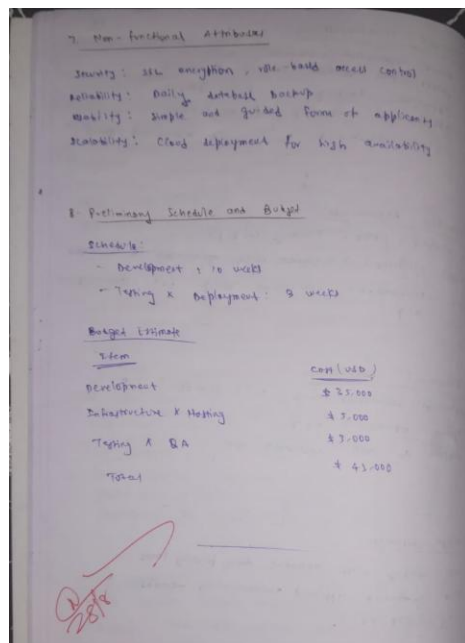 7. Non-functional Attributes
Security: SSL encryption, role-based access control
Reliability: Daily database backup
Usability: Simple and guided forms of applicants
Scalability: Cloud deployment for high availability
8. Preliminary Schedule and Budget
Schedule:
- Development : 10 weeks
- Testing & Deployment: 3 weeks
Budget Estimate
Item Cost (USD)
Development $ 35,000
Infrastructure & Hosting $ 5,000
Testing & QA $ 5,000
Total $ 45,000
28/8